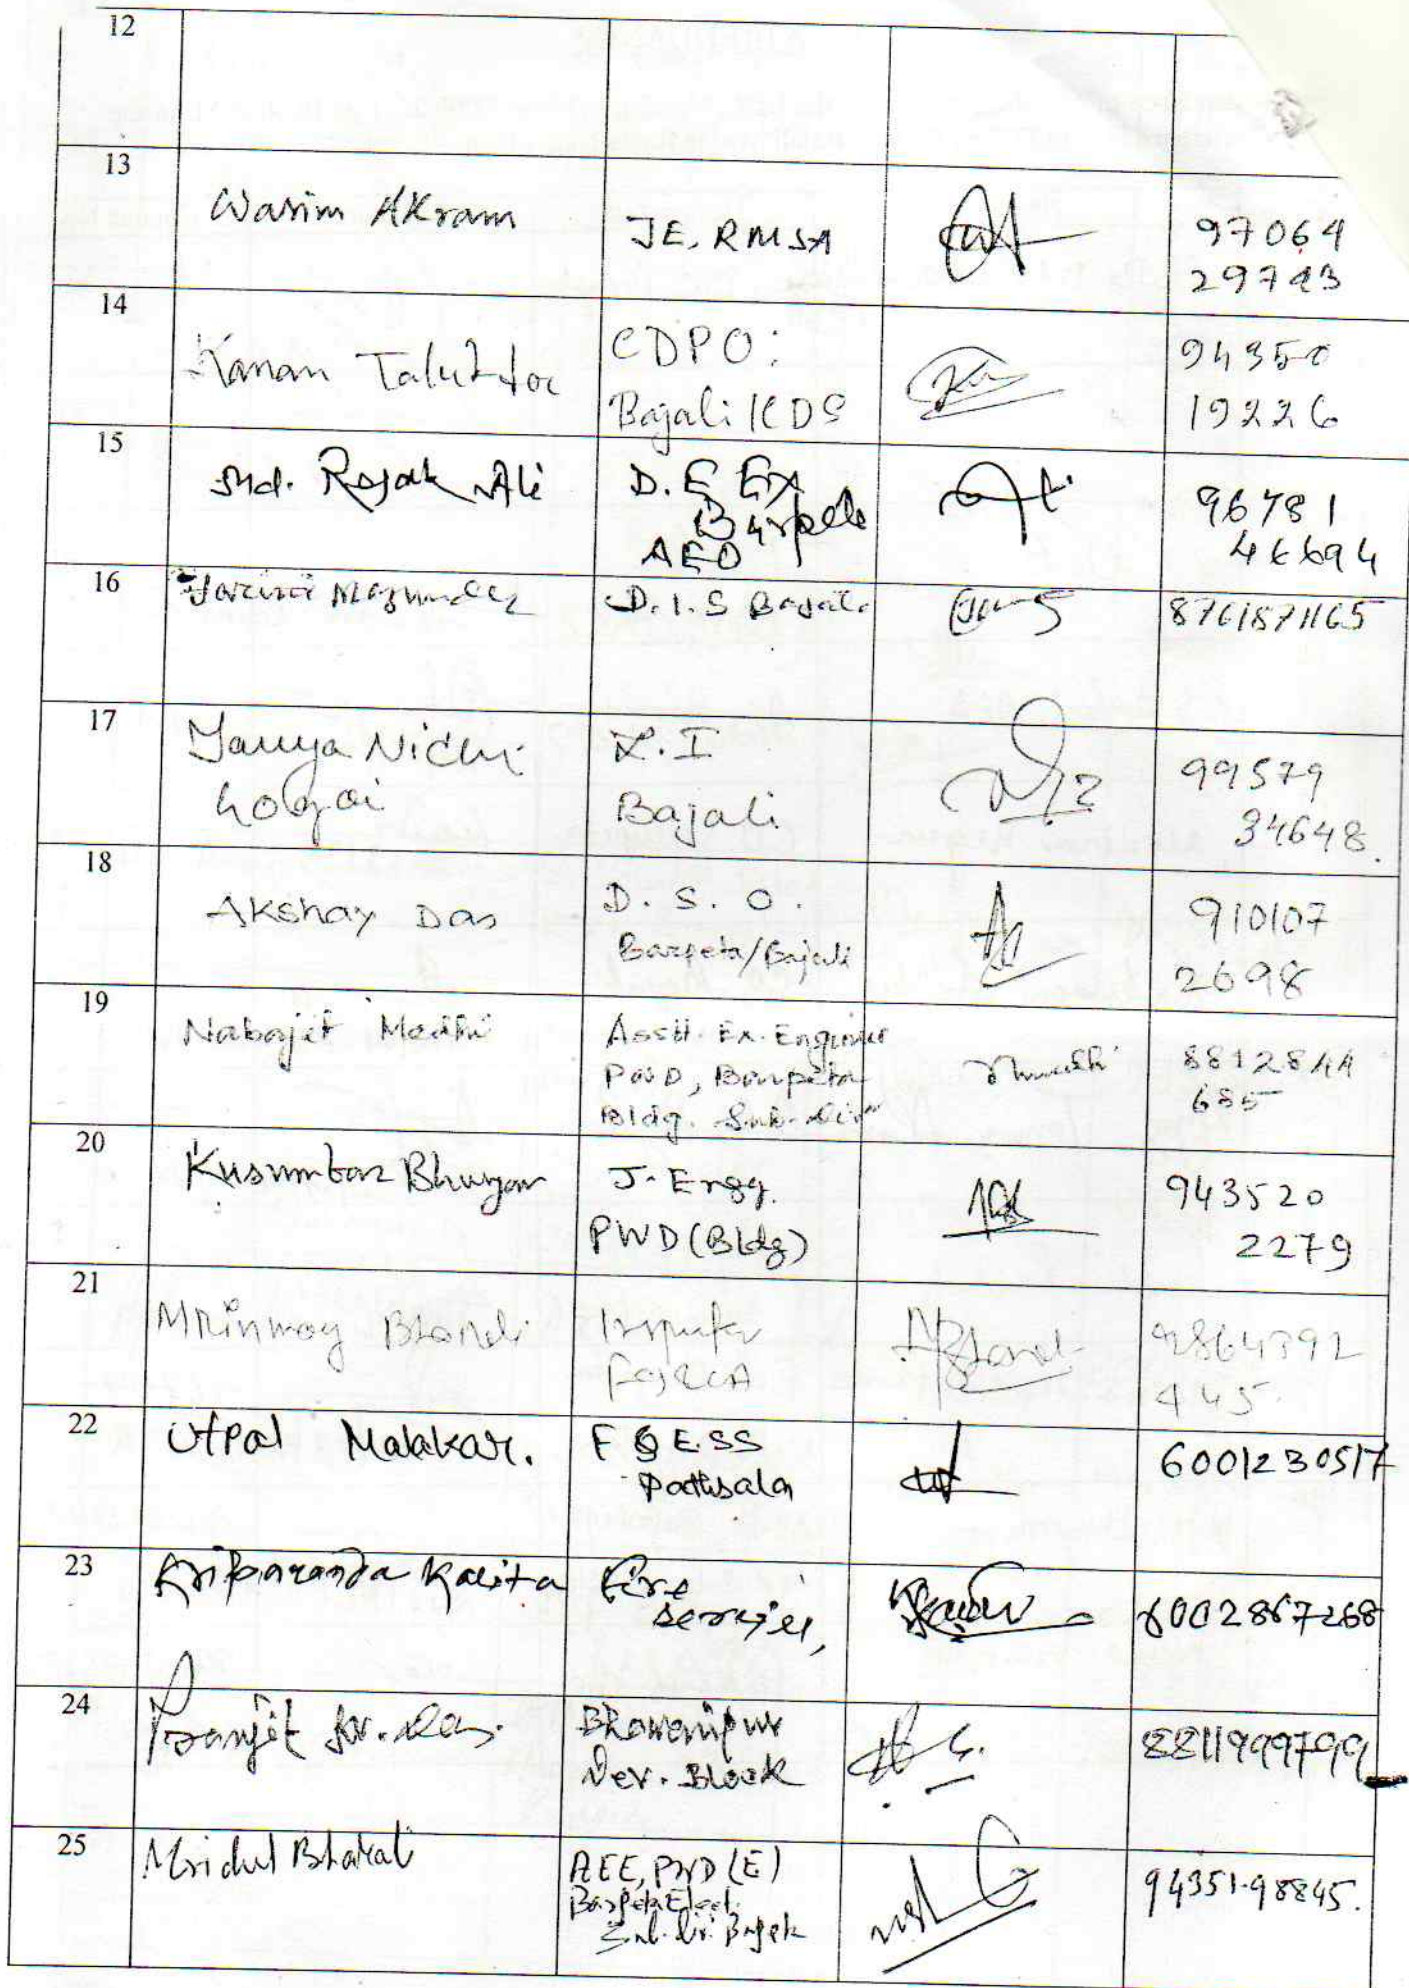 12
13
Wasim Akram
JE, RMSA
97064
29743
14
Kanan Talukdar
CDPO:
Bajali ICDS
94350
19226
15
Md. Rajak Ali
D.E Ex
Barpeta
AEO
96781
46694
16
Mazumdar
D.I.S Bajali
8761871165
17
Nidhi
Gogoi
L.I
Bajali
99579
34648.
18
Akshay Das
D. S. O.
Barpeta/Bajali
910107
2698
19
Nabajit Medhi
Asstt. Ex. Engineer
PWD, Barpeta
Bldg. Sub-divn
8812844
685
20
Kusumbar Bhuyan
J. Engg.
PWD (Bldg)
943520
2279
21
Mrinmoy
Inspector
9864392
445.
22
Utpal Malakar.
F & E.SS
Pathsala
6001230517
23
Kripananda Kalita
Fire
Service,
6002867268
24
Pranjit Kr. Das.
Bhawanipur
Dev. Block
8811999799
25
Mridul Bharali
AEE, PWD (E)
Barpeta Elect.
Sub. div.
94351-98845.